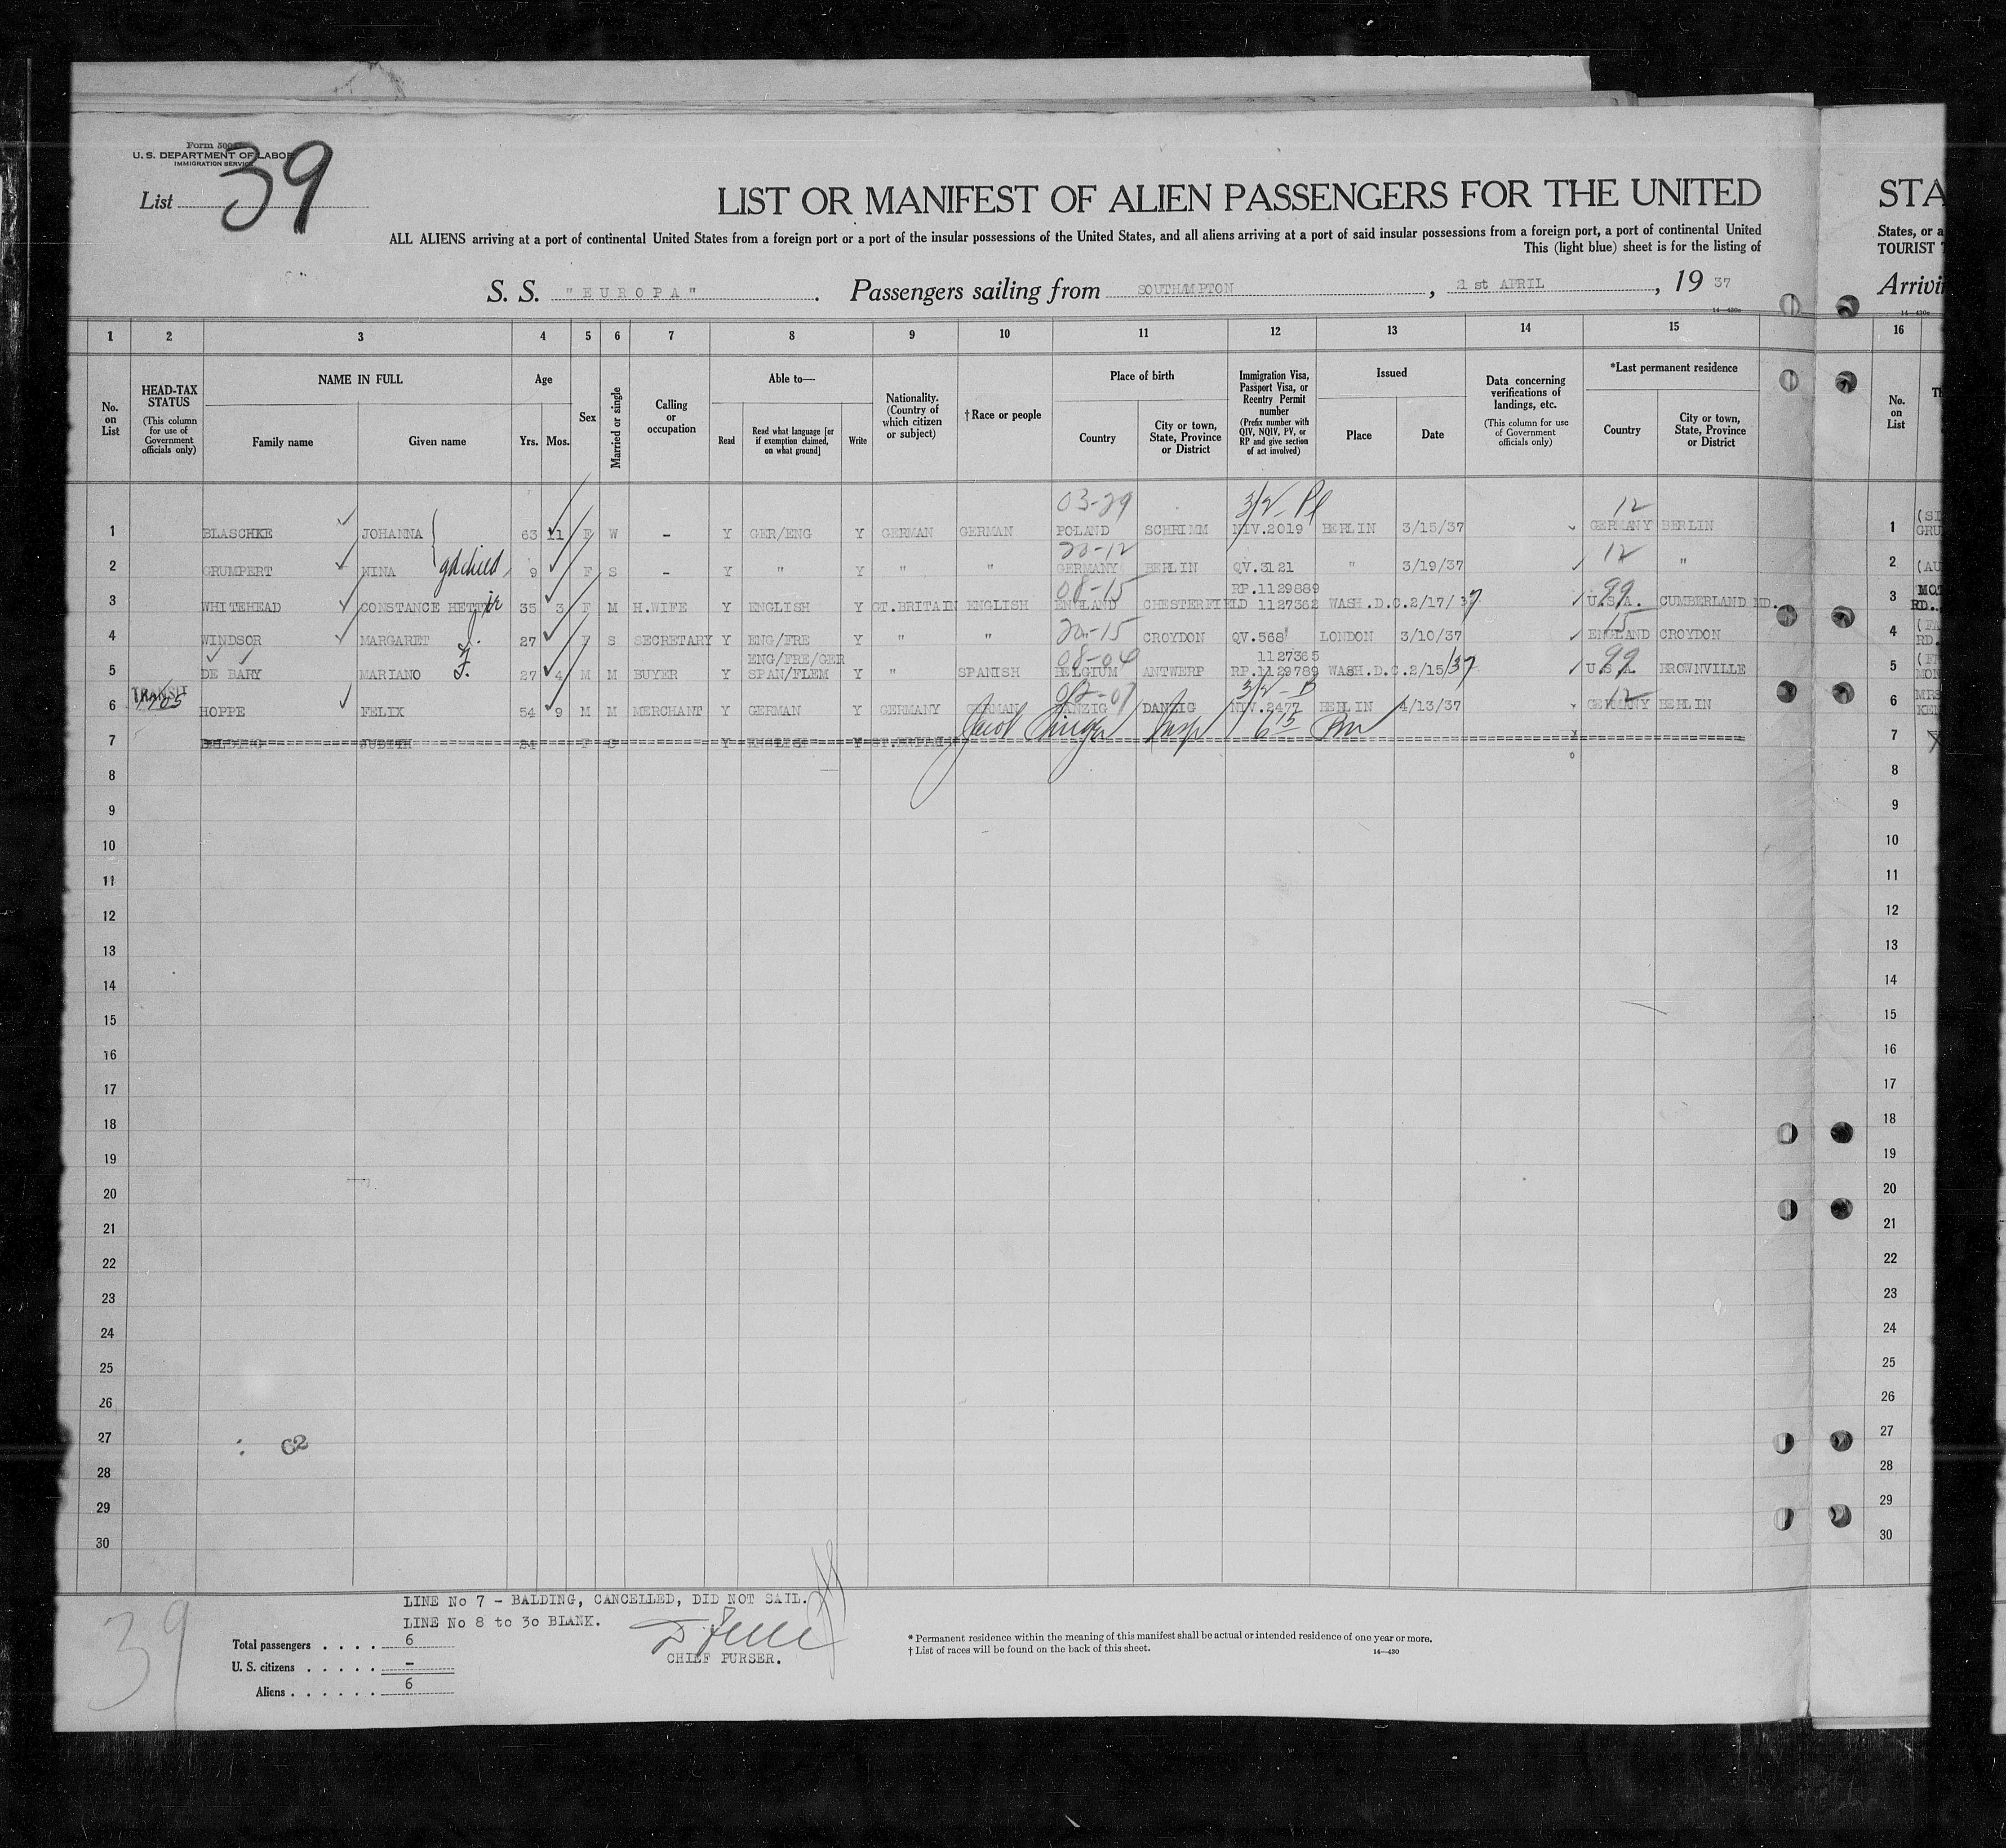 Form 500
U. S. DEPARTMENT OF LABOR
IMMIGRATION SERVICE
List 39
LIST OR MANIFEST OF ALIEN PASSENGERS FOR THE UNITED
ALL ALIENS arriving at a port of continental United States from a foreign port or a port of the insular possessions of the United States, and all aliens arriving at a port of said insular possessions from a foreign port, a port of continental United
This (light blue) sheet is for the listing of
S. S. "EUROPA". Passengers sailing from SOUTHAMPTON, 21st APRIL, 19 37
14—430c
STA
States, or a
TOURIST
Arrivi
14—430c
1 2 3 4 5 6 7 8 9 10 11 12 13 14 15 16
No. on List
HEAD-TAX STATUS
(This column for use of Government officials only)
NAME IN FULL
Family name Given name
Age
Yrs. Mos.
Sex
Married or single
Calling or occupation
Able to—
Read
Read what language [or if exemption claimed, on what ground]
Write
Nationality. (Country of which citizen or subject)
†Race or people
Place of birth
Country
City or town, State, Province or District
Immigration Visa, Passport Visa, or Reentry Permit number
(Prefix number with QIV, NQIV, PV, or RP and give section of act involved)
Issued
Place Date
Data concerning verifications of landings, etc.
(This column for use of Government officials only)
*Last permanent residence
Country
City or town, State, Province or District
No. on List
Th
03-29 3/2-Pl 12
1 BLASCHKE JOHANNA 63 11 F W - Y GER/ENG Y GERMAN GERMAN POLAND SCHRIMM NIV.2019 BERLIN 3/15/37 GERMANY BERLIN 1 GRU
20-12 12
2 GRUMPERT NINA gdchild 9 F S - Y " Y " " GERMANY BERLIN QV.3121 " 3/19/37 " 2 (AU
08-15 RP.1129889 99
3 WHITEHEAD CONSTANCE HETTY 35 3 F M H.WIFE Y ENGLISH Y GT.BRITAIN ENGLISH ENGLAND CHESTERFIELD 1127362 WASH.D.C. 2/17/37 U.S.A. CUMBERLAND MD. 3 MOT RD..
20-15 15
4 WINDSOR MARGARET J. 27 F S SECRETARY Y ENG/FRE Y " " CROYDON QV.568 LONDON 3/10/37 ENGLAND CROYDON 4 (FA RD.
ENG/FRE/GER 08-04 1127365 99
5 DE BARY MARIANO J. 27 4 M M BUYER Y SPAN/FLEM Y " SPANISH BELGIUM ANTWERP RP.1129789 WASH.D.C. 2/15/37 U.S.A. BROWNVILLE 5 MON
TRANSIT 12
6 HOPPE FELIX 54 9 M M MERCHANT Y GERMAN Y GERMANY GERMAN DANZIG DANZIG NIV.2477 BERLIN 4/13/37 GERMANY BERLIN 6 MRS KEN
7 JUDITH 24 F S Y ENGLISH Y GT.BRITAIN Jacob Insp 7
8 8
9 9
10 10
11 11
12 12
13 13
14 14
15 15
16 16
17 17
18 18
19 19
20 20
21 21
22 22
23 23
24 24
25 25
26 26
27 C2 27
28 28
29 29
30 30
LINE No 7 - BALDING, CANCELLED, DID NOT SAIL.
LINE No 8 to 30 BLANK.
39
Total passengers . . . . 6
U. S. citizens . . . . . -
Aliens . . . . . . 6
CHIEF PURSER.
* Permanent residence within the meaning of this manifest shall be actual or intended residence of one year or more.
† List of races will be found on the back of this sheet.
14—430